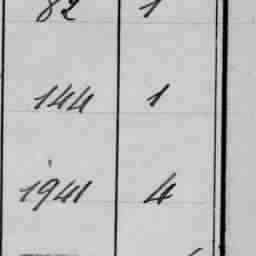 82 1
144 1
1941 4